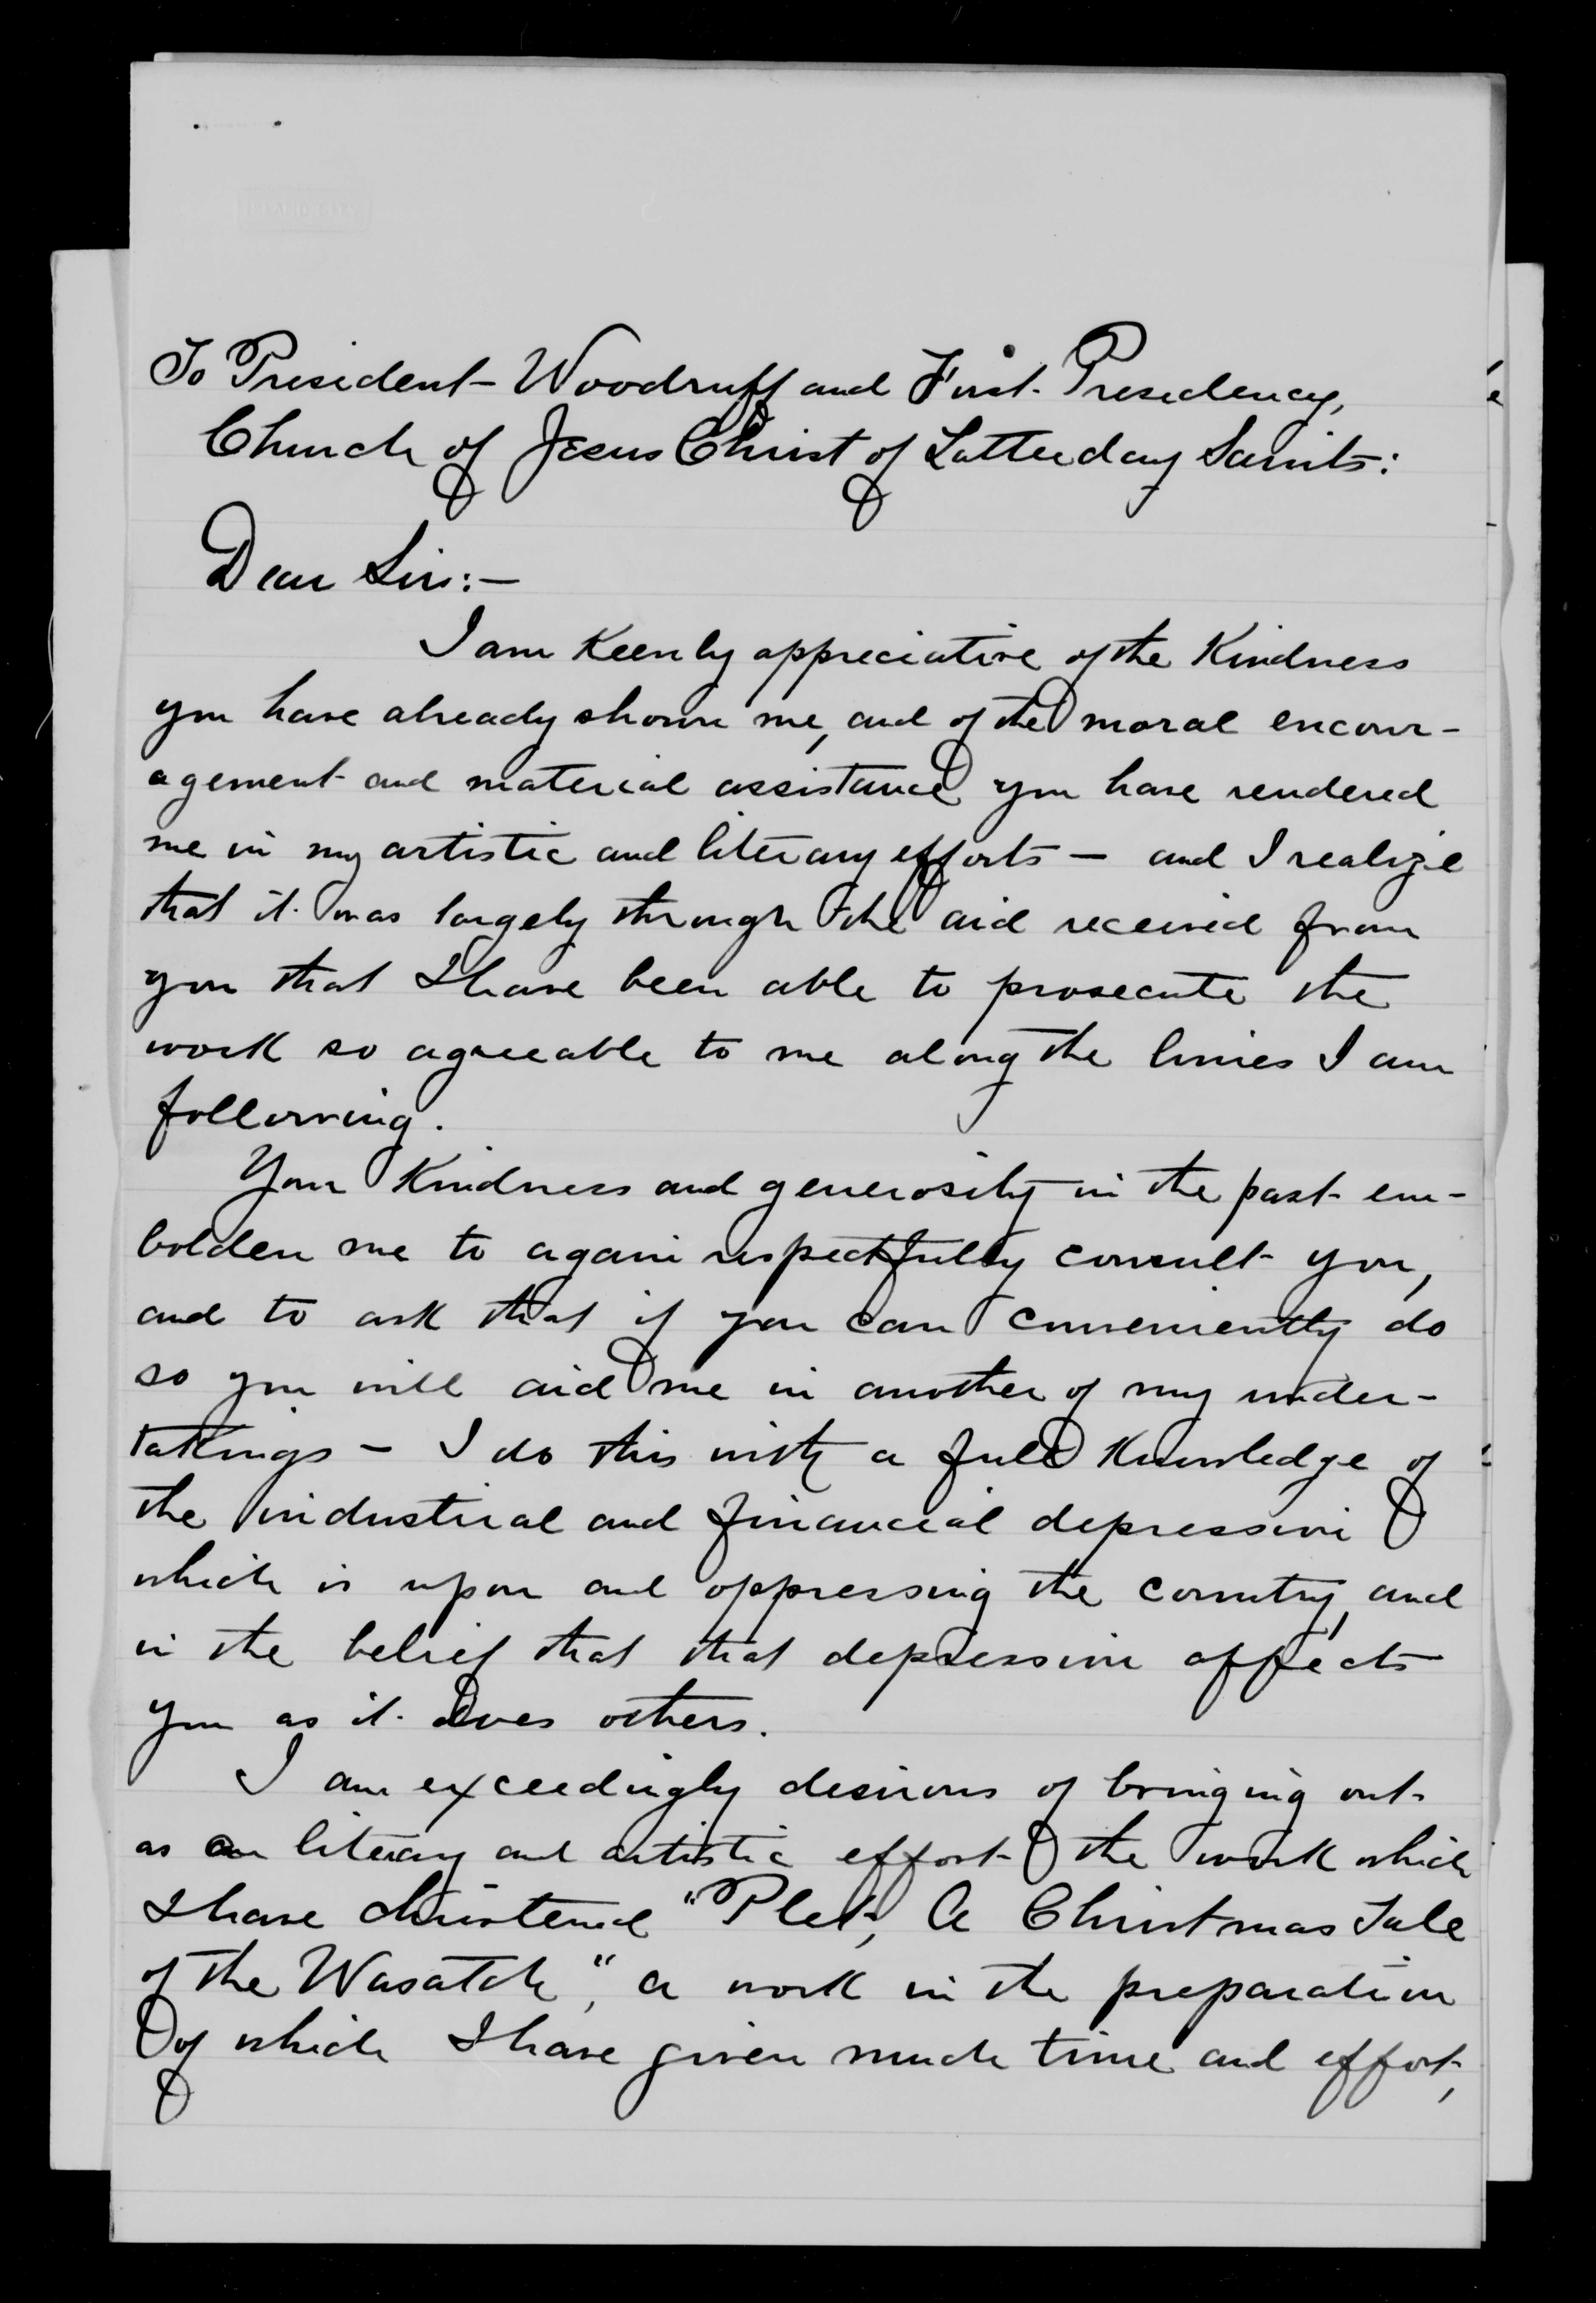 To President Woodruff and First Presidency,
Church of Jesus Christ of Latterday Saints:
Dear Sirs:—
I am Keenly appreciative of the Kindness
you have already shown me, and of the moral encour-
agement and material assistance you have rendered
me in my artistic and literary efforts — and I realize
that it was largely through the aid received from
you that I have been able to prosecute the
work so agreeable to me along the lines I am
following.
Your Kindness and generosity in the past em-
bolden me to again respectfully consult you,
and to ask that if you can conveniently do
so you will aid me in another of my under-
takings — I do this with a full Knowledge of
the industrial and financial depression
which is upon and oppressing the country, and
in the belief that that depression affects
you as it does others.
I am exceedingly desirous of bringing out
as a literary and artistic effort the work which
I have christened "Plet, A Christmas Tale
of the Wasatch", a work in the preparation
of which I have given much time and effort,